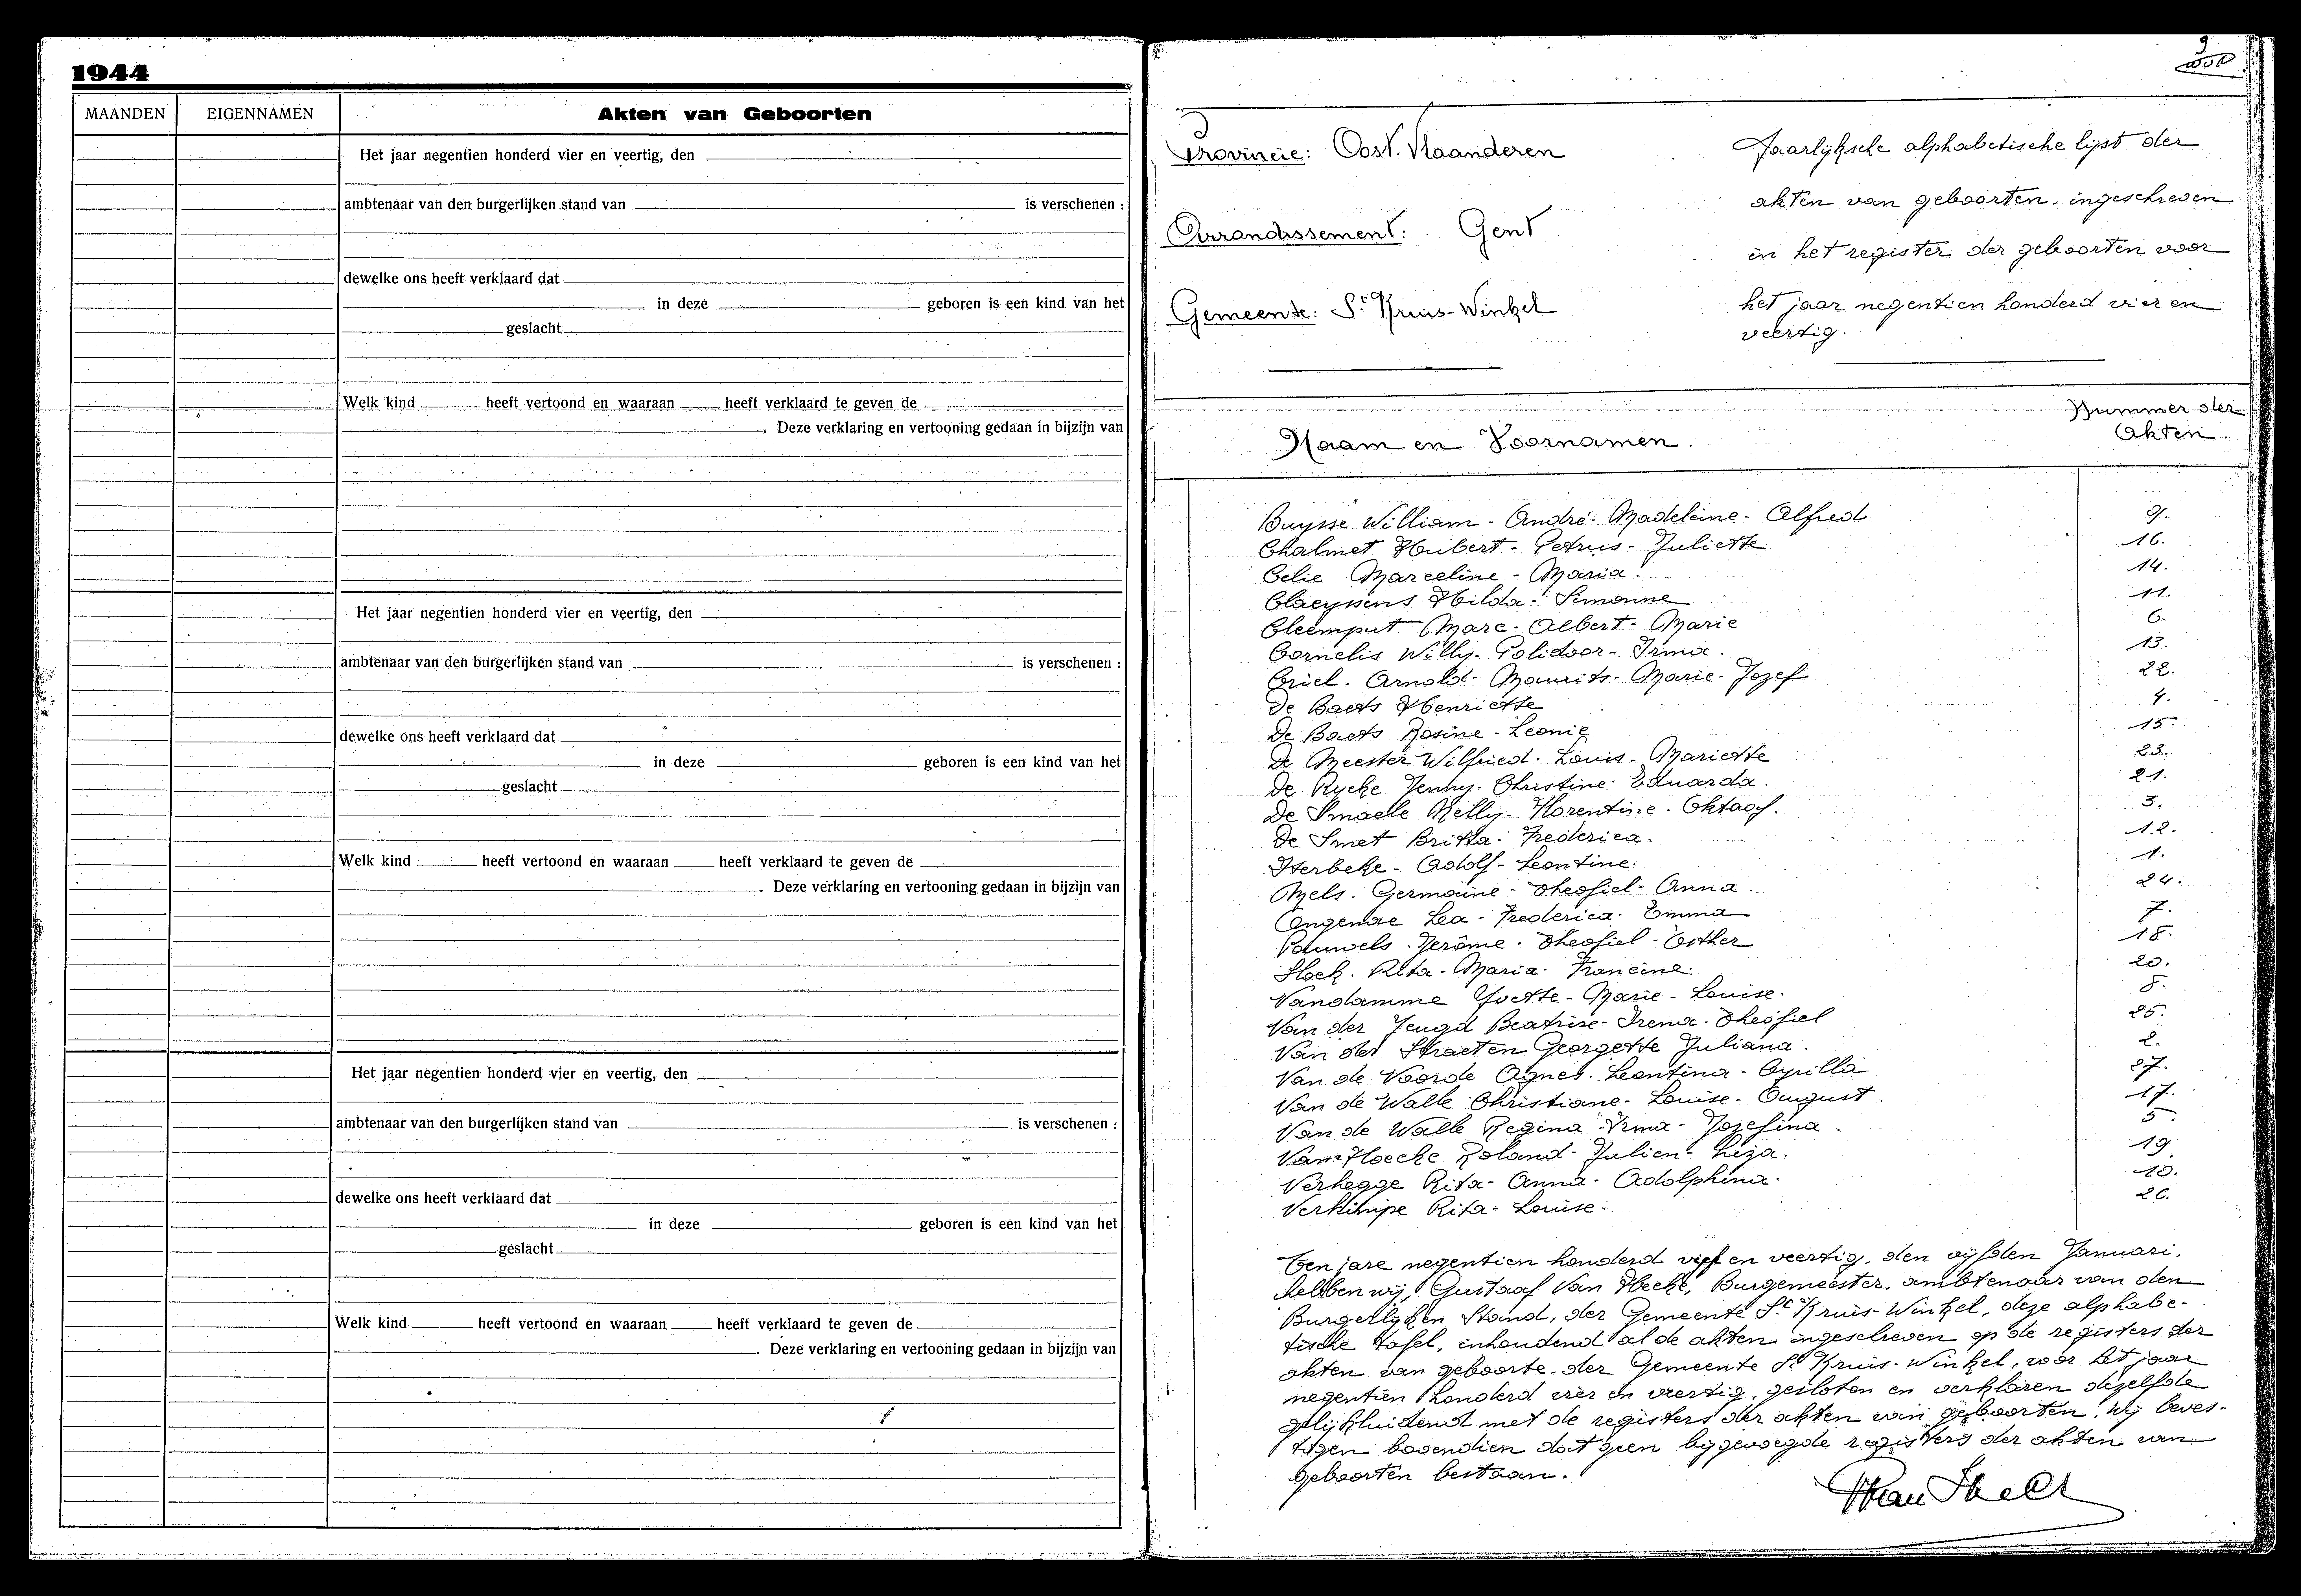 1944
MAANDEN EIGENNAMEN Akten van Geboorten
Het jaar negentien honderd vier en veertig, den
ambtenaar van den burgerlijken stand van is verschenen :
dewelke ons heeft verklaard dat
in deze geboren is een kind van het
geslacht
Welk kind heeft vertoond en waaraan heeft verklaard te geven de
. Deze verklaring en vertooning gedaan in bijzijn van
Het jaar negentien honderd vier en veertig, den
ambtenaar van den burgerlijken stand van is verschenen :
dewelke ons heeft verklaard dat
in deze geboren is een kind van het
geslacht
Welk kind heeft vertoond en waaraan heeft verklaard te geven de
. Deze verklaring en vertooning gedaan in bijzijn van
Het jaar negentien honderd vier en veertig, den
ambtenaar van den burgerlijken stand van is verschenen :
dewelke ons heeft verklaard dat
in deze geboren is een kind van het
geslacht
Welk kind heeft vertoond en waaraan heeft verklaard te geven de
. Deze verklaring en vertooning gedaan in bijzijn van
9
Provincie: Oost. Vlaanderen
Arrondissement: Gent
Gemeente: St Kruis-Winkel
Jaarlijksche alphabetische lijst der
akten van geboorten. ingeschreven
in het register der geboorten voor
het jaar negentien honderd vier en
veertig.
Naam en Voornamen. Nummer der
Akten.
Buysse William - André - Madeleine - Alfred 9.
Chalmet Hubert - Petrus - Juliette 16.
Celie Marceline - Maria. 14.
Claeyssens Hilda - Simonne 11.
Cleemput Marc - Albert - Marie 6.
Cornelis Willy - Polidoor - Irma. 13.
Criel - Arnold - Maurits - Marie - Jozef 22.
De Baets Henriette 4.
De Baets Rosine - Leonie 15.
De Meester Wilfried - Louis - Mariette 23.
De Rycke Jenny - Christine - Eduarda. 21.
De Smaele Nelly - Florentine - Oktaaf. 3.
De Smet Britta - Frederica. 12.
Herbeke - Adolf - Leontine. 1.
Mels - Germaine - Theofiel - Anna. 24.
Ongenae Lea - Frederica - Emma 7.
Pauwels - Jerôme - Theofiel - Esther 18.
Slock - Rita - Maria - Francine. 20.
Vandamme Yvette - Marie - Louise. 8.
Van der Jeugd Beatrise - Irena - Theofiel 25.
Van der Straeten Georgette Juliana. 2.
Van de Voorde Agnes - Leontina - Cyrilla 27.
Van de Walle Christiane - Louise - August. 17.
Van de Walle Regina - Irma - Jozefina. 5
Van Hoecke Roland - Julien - Liza. 19
Verhegge Rita - Anna - Adolphina. 10.
Verkimpe Rita - Louise. 26.
Ten jare negentien honderd vijf en veertig, den vijfden Januari.
hebben wij, Gustaaf Van Hecke, Burgemeester, ambtenaar van den
Burgerlijken Stand, der Gemeente St Kruis-Winkel, deze alphabe-
tische tafel, inhoudend al de akten ingeschreven op de registers der
akten van geboorte der Gemeente St Kruis-Winkel, voor het jaar
negentien honderd vier en veertig, gesloten en verklaren dezelfde
gelijkluidend met de registers der akten van geboorten. Wij beves-
tigen bovendien dat geen bijgevoegde registers der akten van
geboorten bestaan.